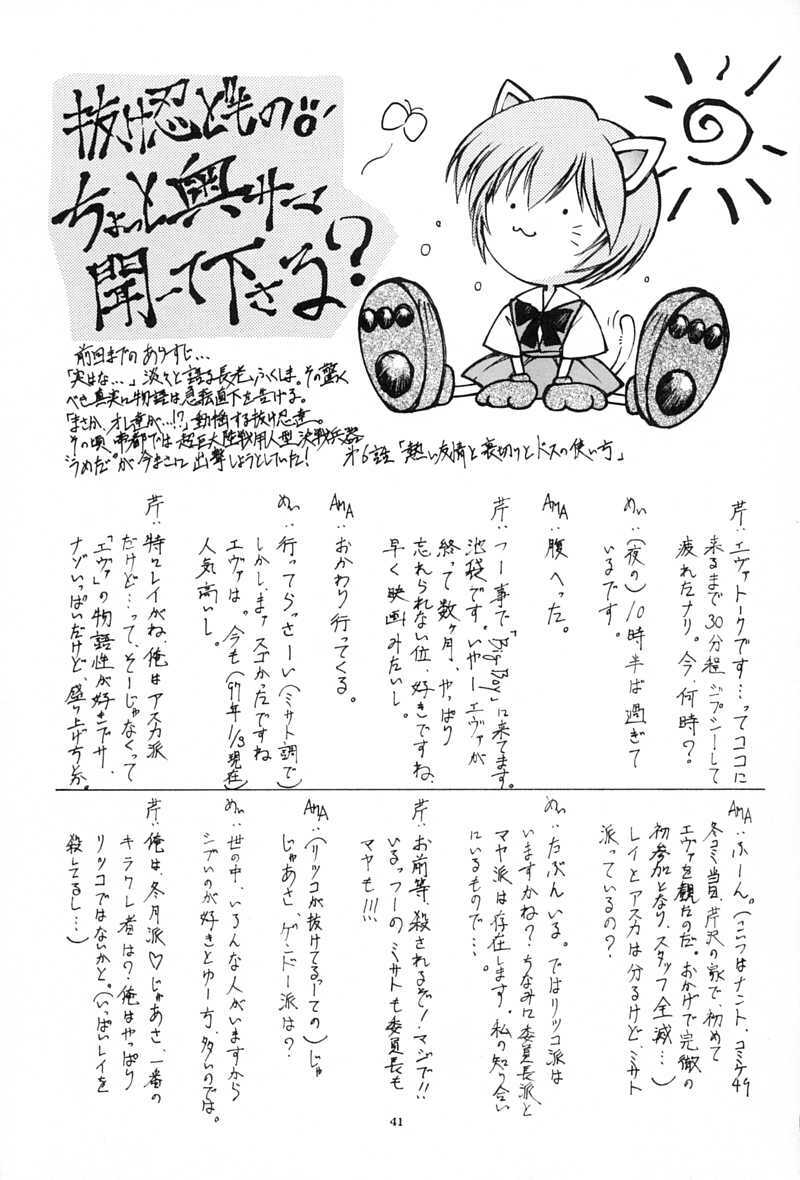 抜け忍どもの
ちょっと奥サマ
聞いて下さる?
前回までのあらすじ…
「実はな…」淡々と語る長老、ふくしま。その驚く
べき真実に物語は急転直下を告げる。
「まさか、オレ達が…!?」動揺する抜け忍達。
その頃、帝都では超巨大陸戦用人型決戦兵器
"うめだ"が今まさに出撃しようとしていた!
第6話「熱い友情と裏切りとドスの使い方」
芹:エヴァトークです…ってココに
来るまで30分程ジプシーして
疲れたナリ。今、何時?
めい:(夜の)10時半ば過ぎて
いるです。
AMA:腹へった。
芹:つー事で「Big Boy」に来てます。
池袋です。いやーエヴァが
終って数ヶ月、やっぱり
忘れられない位、好きですね、
早く映画みたいし。
AMA:おかわり行ってくる。
めい:行ってらっさーい(ミサト調で)
しかし、まァスゴかったですね
エヴァは。今も(97年1/3現在)
人気高いし。
芹:特にレイがね、俺はアスカ派
だけど…って、そーじゃなくって
「エヴァ」の物語性が好きでサ、
ナゾいっぱいだけど、盛り上げ方とか。
AMA:ふーん。(こいつはナント、コミケ49
冬コミ当日、芹沢の家で、初めて
エヴァを観たのだ。おかげで完徹の
初参加となり、スタッフ全滅…)
レイとアスカは分るけど、ミサト
派っているの?
めい:たぶんいる。ではリツコ派は
いますかね?ちなみに委員長派と
マヤ派は存在します。私の知り合い
にいるもので…。
芹:お前等、殺されるぞ!マジで!!
いるっつーの、ミサトも委員長も
マヤも!!!
AMA:(リツコが抜けてるっーての)じゃ
じゃあさ、ゲンドー派は?
めい:世の中、いろんな人がいますから
シブいのが好きとゆー方、多いのでは。
芹:俺は、冬月派♡じゃあさ、一番の
キラクレ者は?俺はやっぱり
リツコではないかと。(いっぱいレイを
殺してるし…)
41